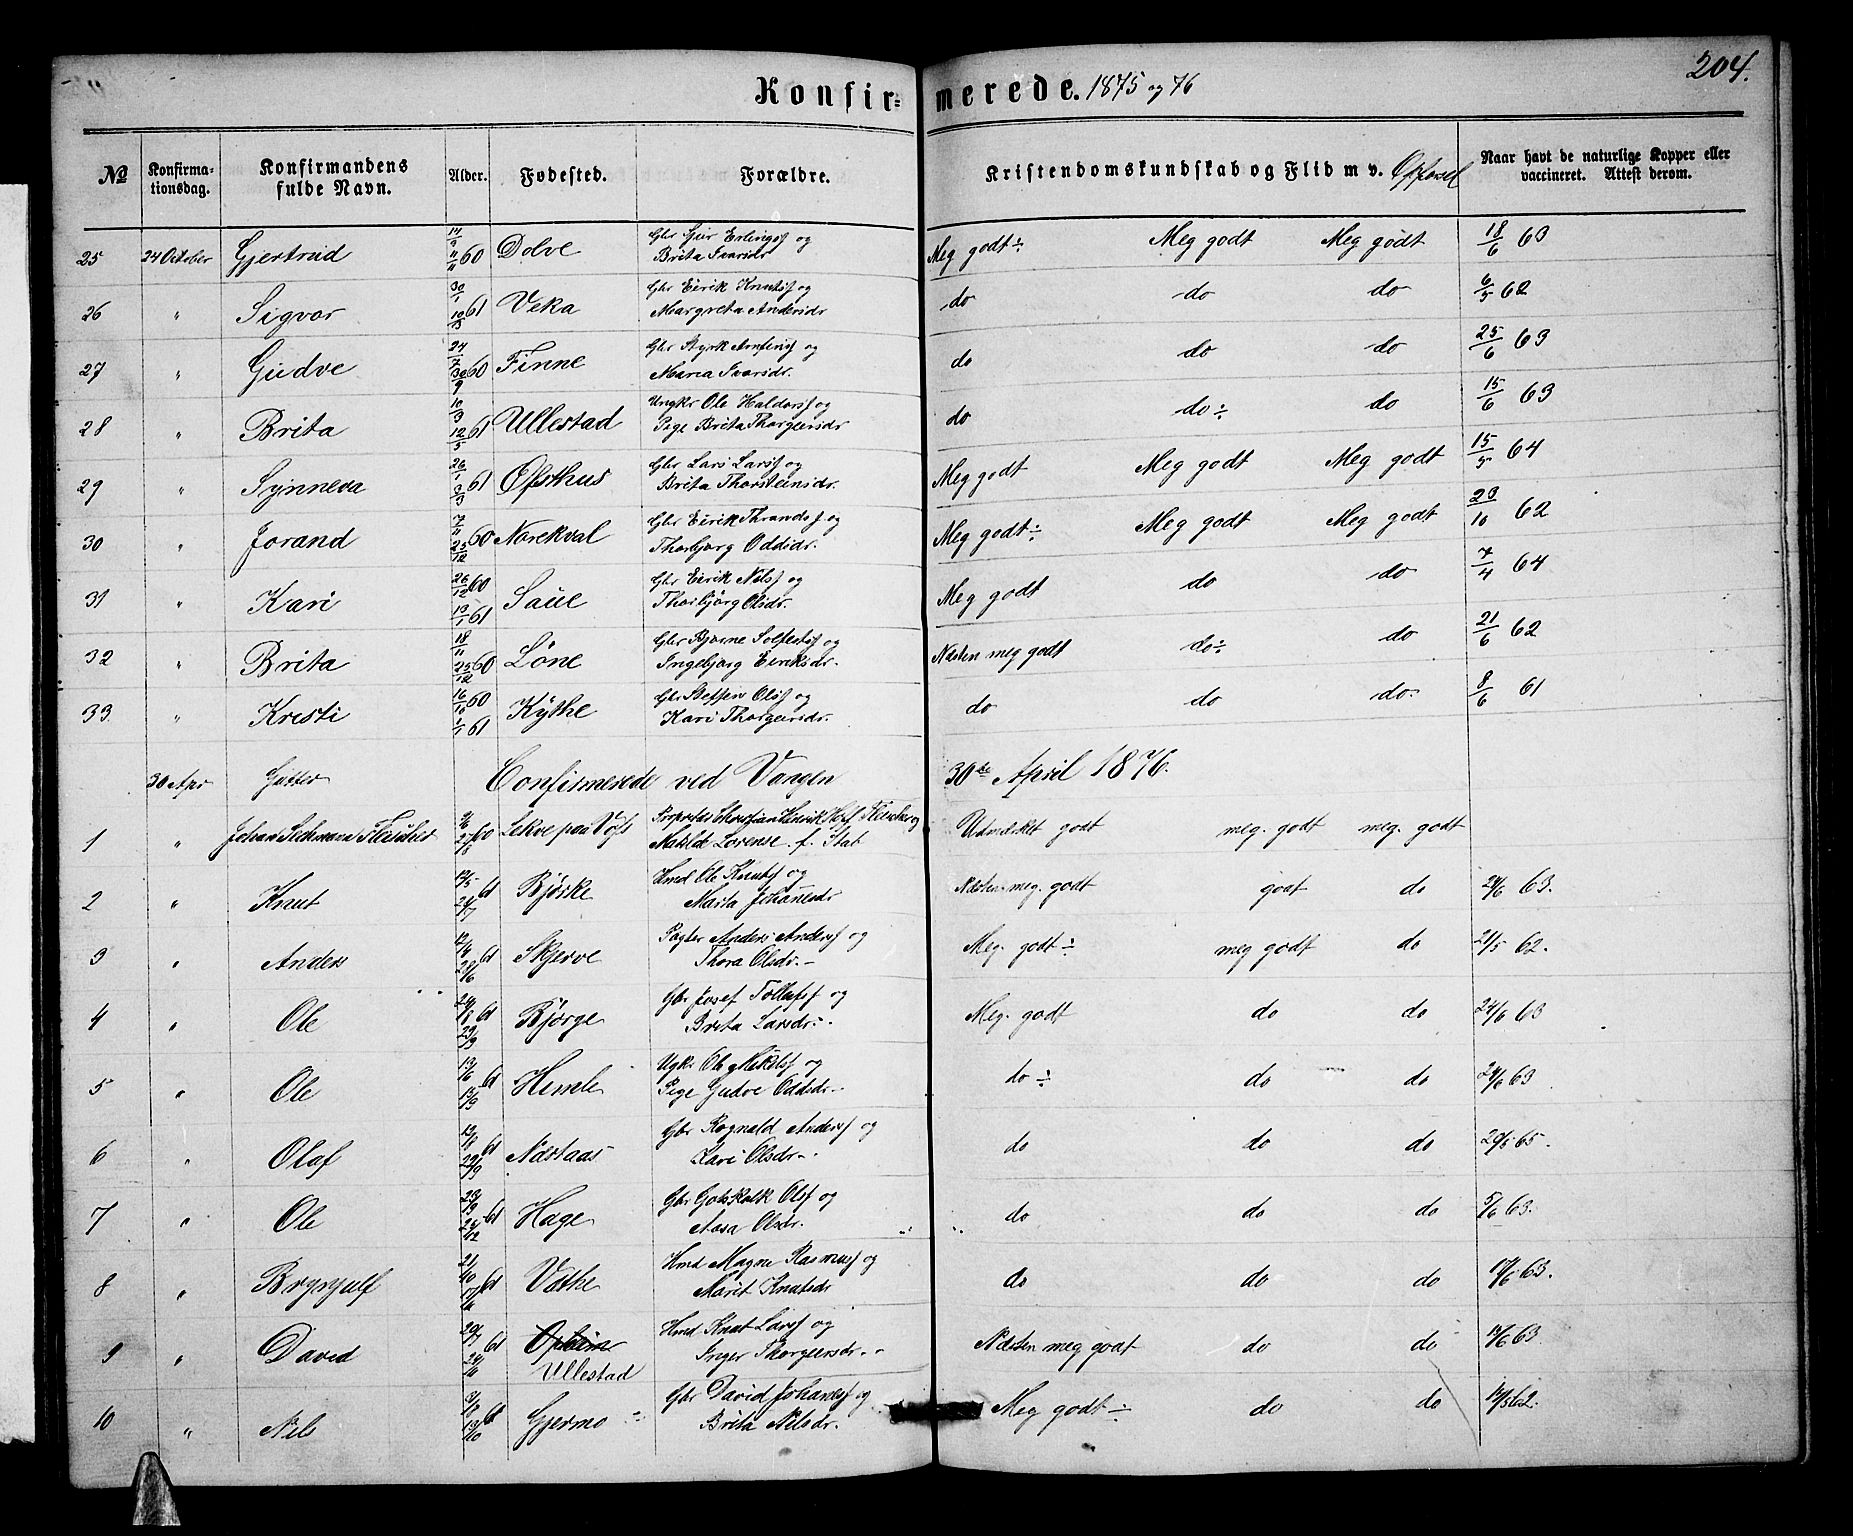 204.
Konfir- merede. 1875 og 76
No Konfirmationsdag. Konfirmandens fulde Navn. Alder. Fødested. Forældre. Kristendomskundskab og Flid m v. Opførsel Naar havt de naturlige Kopper eller vaccineret. Attest derom.
25 24 October Gjertrud 14/9 11/11 60 Dolve Gbr Geir Erlingsf og Brita Ivarsdr Meg godt ÷ Meg godt Meg godt 18/6 63
26 " Sigvor 30/1 10/3 61 Veka Gbr Eirik Knutsf og Margreta Andersdr do do do 6/5 62
27 " Gudve 24/7 30/9 60 Finne Gbr Styrk Arnfinsf og Maria Ivarsdr. do do do 25/6 63
28 " Brita 10/3 12/5 61 Ullestad Ungkr Ole Haldorsf og Pige Brita Thorgeirsdr do do ÷ do 15/6 63
29 " Synneva 26/1 3/3 61 Ofsthus Gbr Lars Larsf og Brita Thorsteinsdr. Meg godt Meg godt Meg godt 15/5 64
30 " Jorand 7/11 25/12 60 Norekval Gbr Eirik Thrandsf og Thorbjorg Oddsdr. Meg godt ÷ Meg godt Meg godt 23/10 62
31 " Kari 26/12 60 13/1 61 Saue Gbr Eirik Nilsf og Thorbjorg Olsdr. Meg godt do do 7/4 64
32 " Brita 18/11 25/12 60 Løne Gbr Bjorne Solfestsf og Ingebjorg Eiriksdr. Næsten meg godt do ÷ do 21/6 62
33 " Kristi 16/10 60 1/1 61 Kythe Gbr Steffen Olsf og Kari Thorgeirsdr. do do do 8/6 61
30 Apr Gutter Confirmerede ved Vangen 30te April 1876.
1 " Johan Lekve paa Vofs Christian Henrik Matilde Lorense f. Stab Udmærket godt meg. godt meg. godt
2 " Knut 61 Bjørke Hmd Ole Knutsf og Marta Johanesdr Næsten meg. godt godt do 24/6 63.
3 " Anders 12/6 28/6 61 Skjerve Pagter Anders Andersf og Thora Olsdr. Meg. godt ÷ meg godt do 21/5 62.
4 " Ole 24/8 29/9 61 Bjørge Gbr Josef Tollefsf og Brita Larsdr. Meg. godt do do 24/6 63
5 " Ole 13/6 15/9 61 Himle Ugkr Ole Mikelsf og Pige Gudve Oddsdr. do ÷ do do 24/6 63
6 " Olaf 13/8 29/9 61 Næstaas Gbr Rognald Andersf og Kari Olsdr. do do do 29/5 65.
7 " Ole 61 Hage Gbr Gotskalk Olsf og Aasa Olsdr. do do do 5/6 63.
8 " Brynjulf 21/10 61 Vethe Hmd Magne Rasmusf og Marit Knutsdr do do do 63.
9 " David 61 Ullestad Hmd Knut Larsf og Inger Thorgeirsdr. Næsten meg godt do do 63.
10 " Nils 61 Gjermo Gbr David Johanesf og Brita Nilsdr. Meg godt ÷ do do 62.